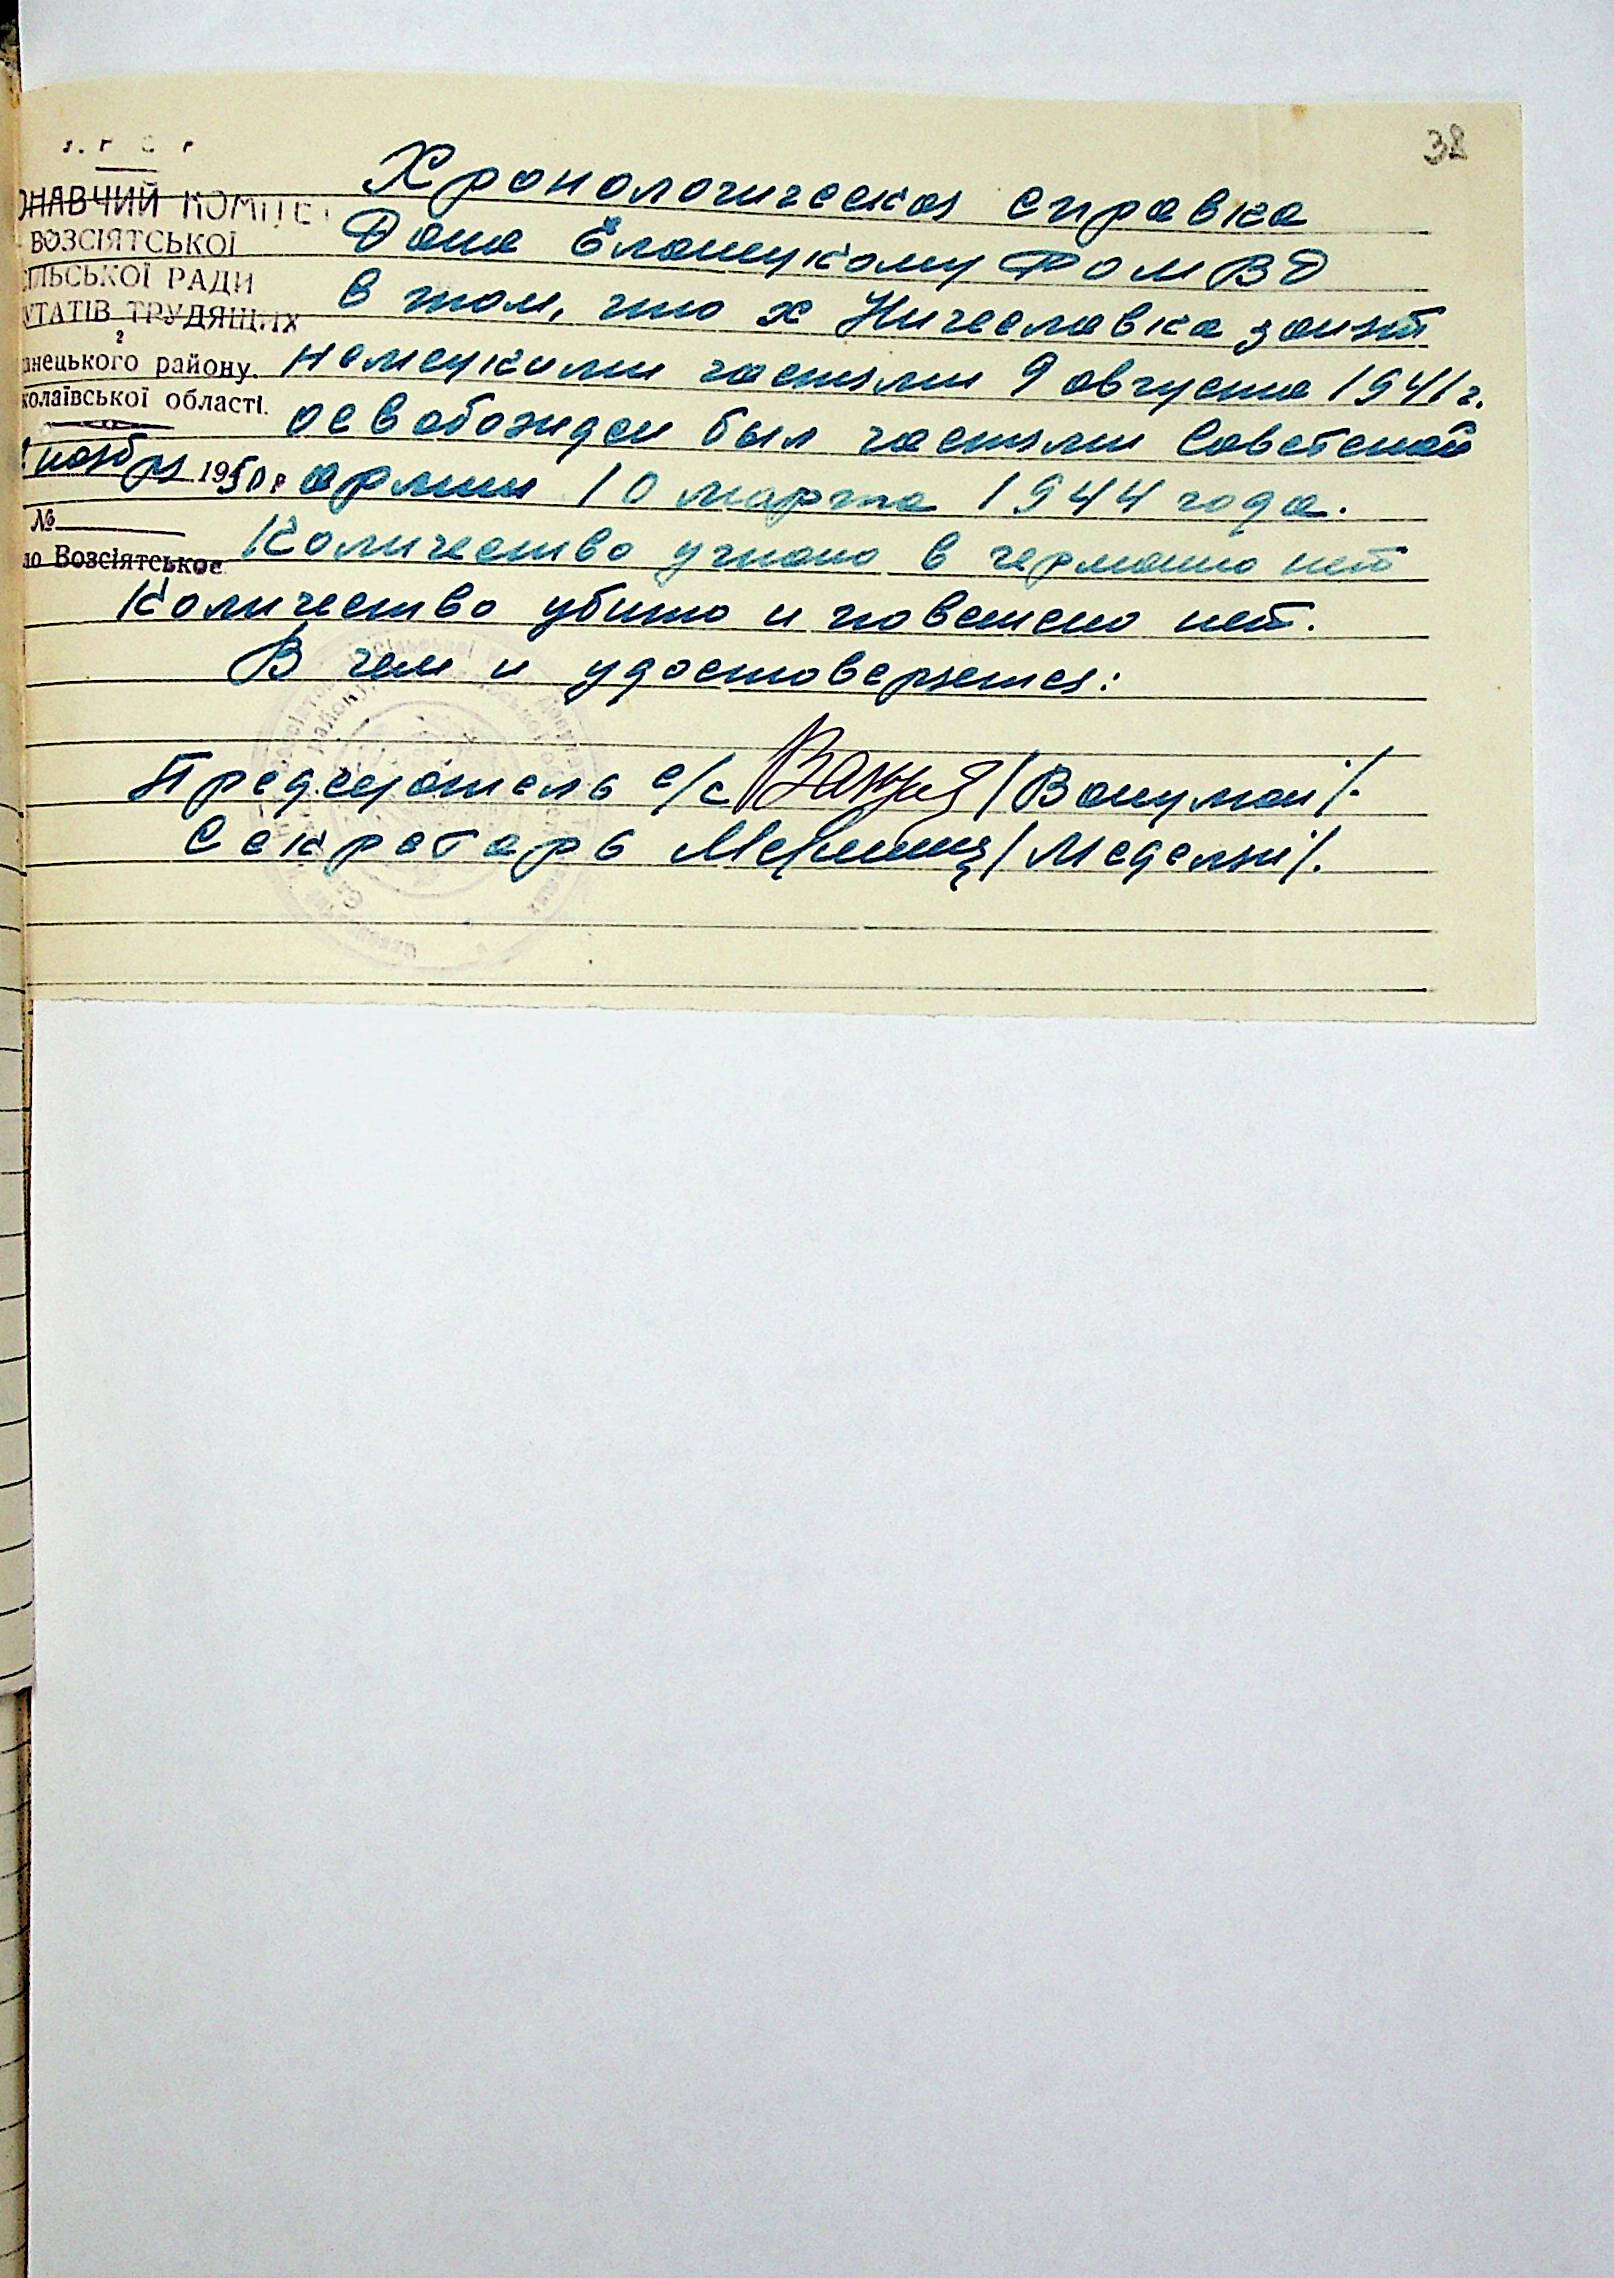 38
ОНАВЧИЙ КОМІТЕТ
ВОЗСІЯТСЬКОЇ
СІЛЬСЬКОЇ РАДИ
УТАТІВ ТРУДЯЩИХ
анецького району.
колаївської області.
ноября 1950 р
№
ло Возсіятськое
Хронологическая справка
Дана Еланцкому РОМВД
в том, что х Ничеславка занят
немецкими частями 9 августа 1941 г.
освобожден был частями Советской
армии 10 марта 1944 года.
Количество угнано в германию нет
Количество убито и повешено нет.
В чем и удостоверяется:
Председатель с/с /Вануман/.
Секретарь /Меделян/.